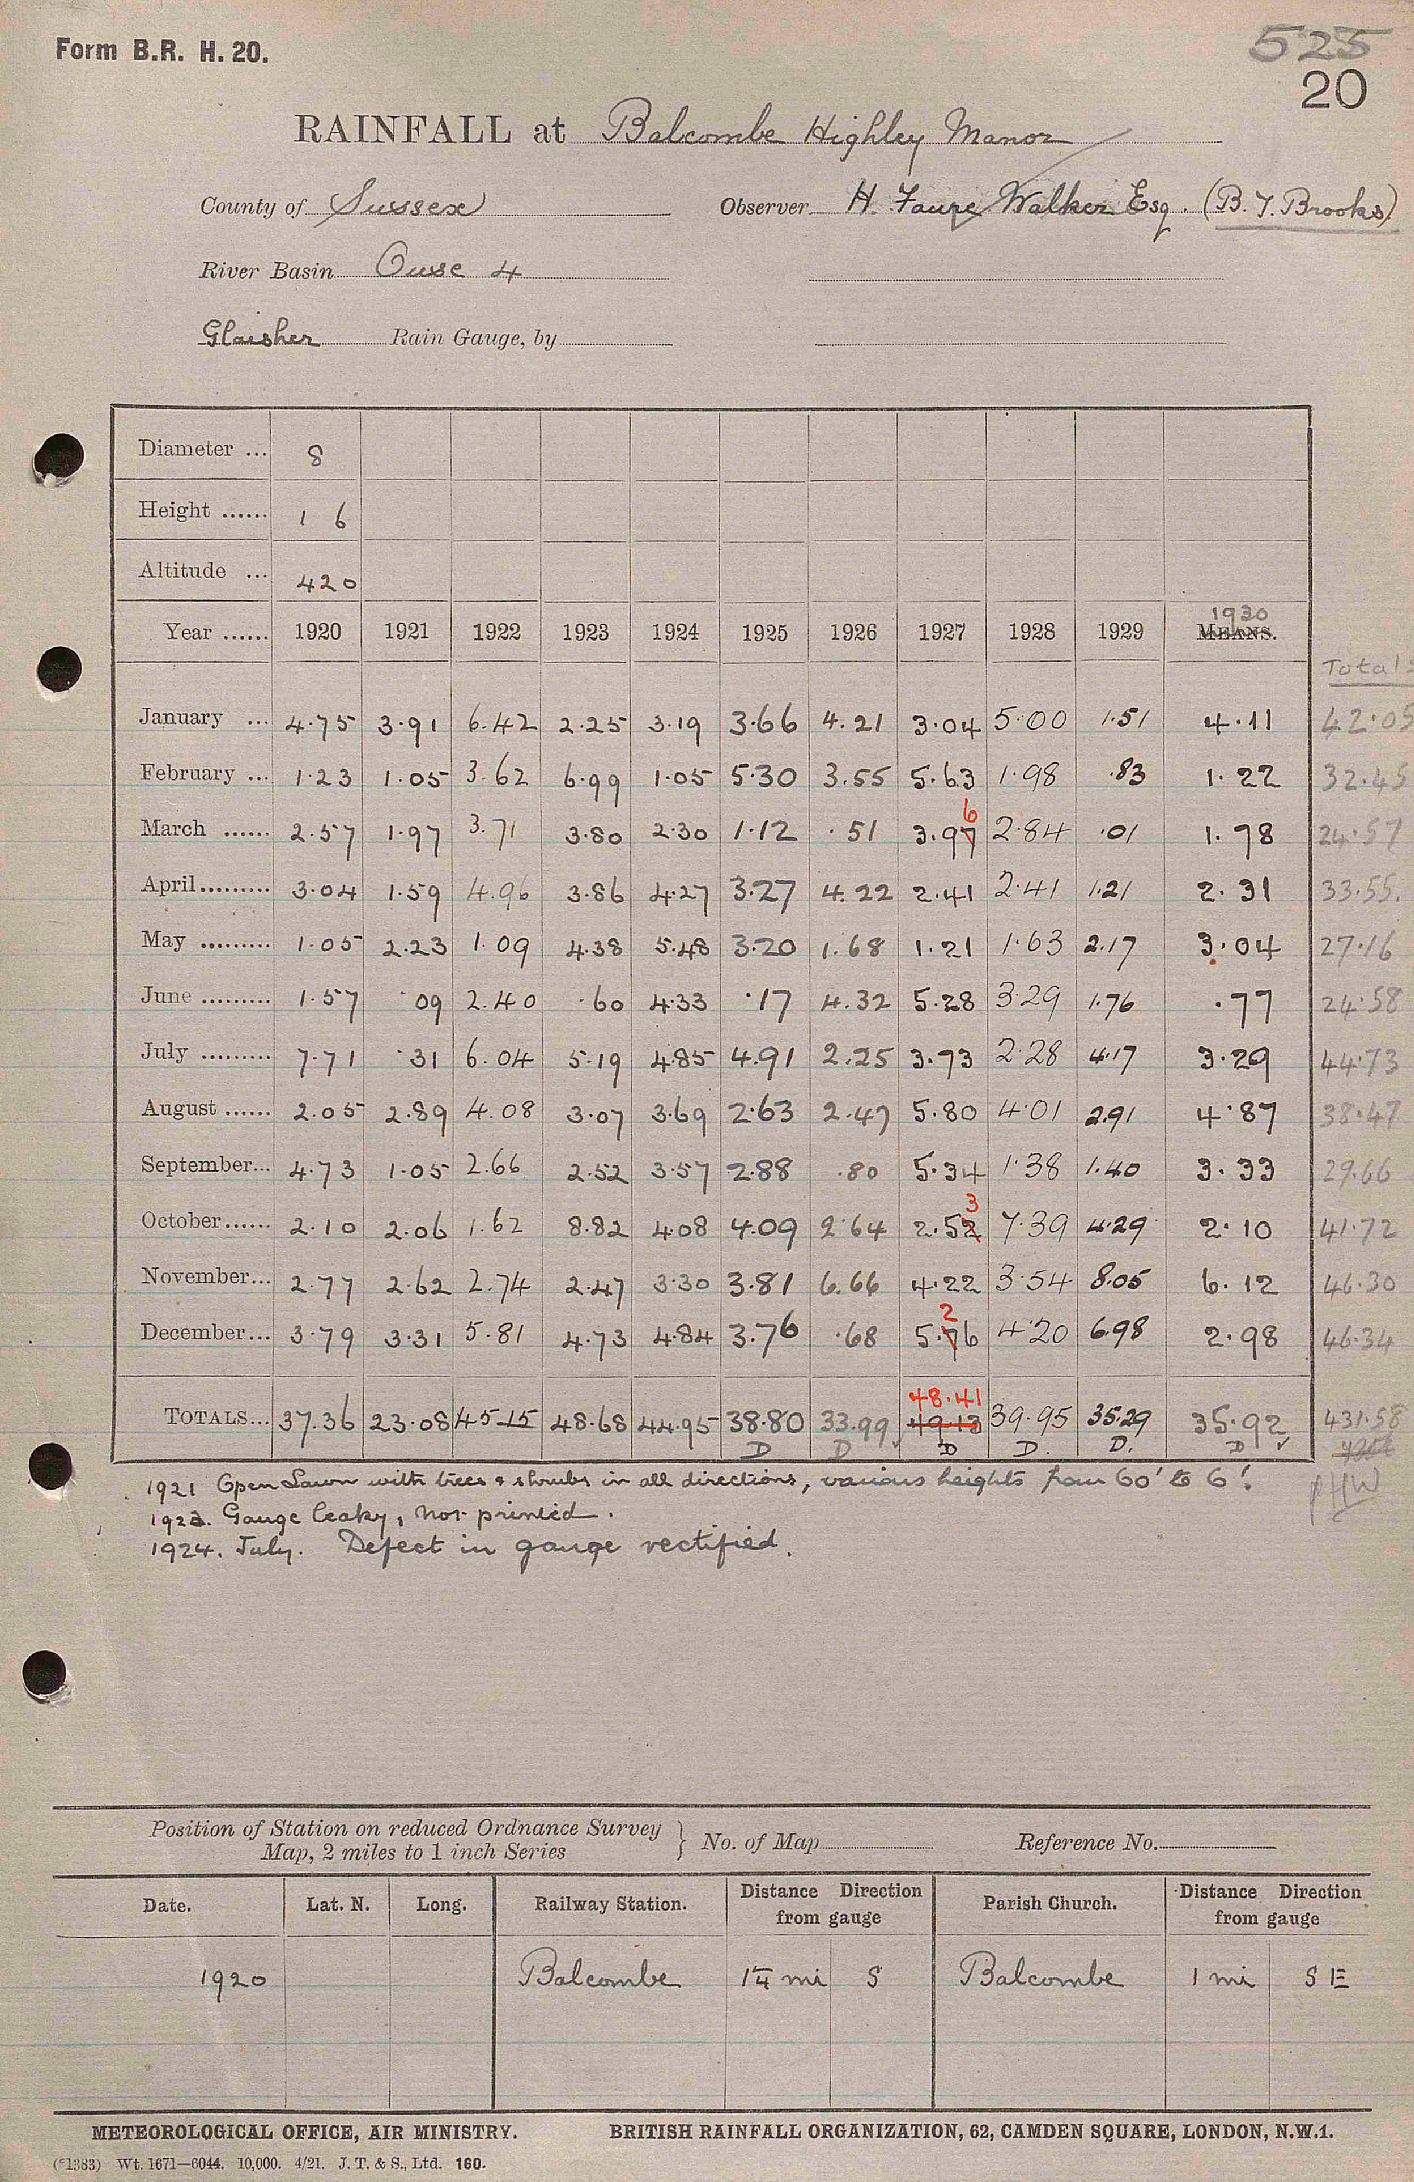 Form B.R. H. 20.
525
20
RAINFALL at Balcombe Highley Manor
County of Sussex Observer H. Faure Walker Esq. (B. J. Brooks)
River Basin Ouse 4
Glaisher Rain Gauge, by
Diameter ... 8
Height ...... 1 6
Altitude ... 420
1930
Year ...... 1920 1921 1922 1923 1924 1925 1926 1927 1928 1929 MEANS.
Totals
January ... 4.75 3.91 6.42 2.25 3.19 3.66 4.21 3.04 5.00 1.51 4.11 42.05
February ... 1.23 1.05 3.62 6.99 1.05 5.30 3.55 5.63 1.98 .83 1.22 32.45
6
March ...... 2.57 1.97 3.71 3.80 2.30 1.12 .51 3.97 2.84 .01 1.78 24.57
April......... 3.04 1.59 4.96 3.86 4.27 3.27 4.22 2.41 2.41 1.21 2.31 33.55.
May ......... 1.05 2.23 1.09 4.38 5.48 3.20 1.68 1.21 1.63 2.17 3.04 27.16
June ......... 1.57 .09 2.40 .60 4.33 .17 4.32 5.28 3.29 1.76 .77 24.58
July ......... 7.71 .31 6.04 5.19 4.85 4.91 2.25 3.73 2.28 4.17 3.29 44.73
August ...... 2.05 2.89 4.08 3.07 3.69 2.63 2.47 5.80 4.01 2.91 4.87 38.47
September... 4.73 1.05 2.66 2.52 3.57 2.88 .80 5.34 1.38 1.40 3.33 29.66
3
October...... 2.10 2.06 1.62 8.82 4.08 4.09 2.64 2.52 7.39 4.29 2.10 41.72
November... 2.77 2.62 2.74 2.47 3.30 3.81 6.66 4.22 3.54 8.05 6.12 46.30
2
December... 3.79 3.31 5.81 4.73 4.84 3.76 .68 5.76 4.20 6.98 2.98 46.34
48.41
TOTALS... 37.36 23.08 45.15 48.68 44.95 38.80 33.99 49.13 39.95 35.29 35.92 431.58
D D D D. D. D
1921 Open Lawn with trees & shrubs in all directions, various heights from 60' to 6'.
PHW
1923. Gauge leaky, not printed.
1924. July. Defect in gauge rectified.
Position of Station on reduced Ordnance Survey
Map, 2 miles to 1 inch Series } No. of Map Reference No.
Date. Lat. N. Long. Railway Station. Distance Direction from gauge Parish Church. Distance Direction from gauge
1920 Balcombe 1¼ mi S Balcombe 1 mi S E
METEOROLOGICAL OFFICE, AIR MINISTRY. BRITISH RAINFALL ORGANIZATION, 62, CAMDEN SQUARE, LONDON, N.W.1.
(*1383) Wt. 1671—6044. 10,000. 4/21. J. T. & S., Ltd. 160.